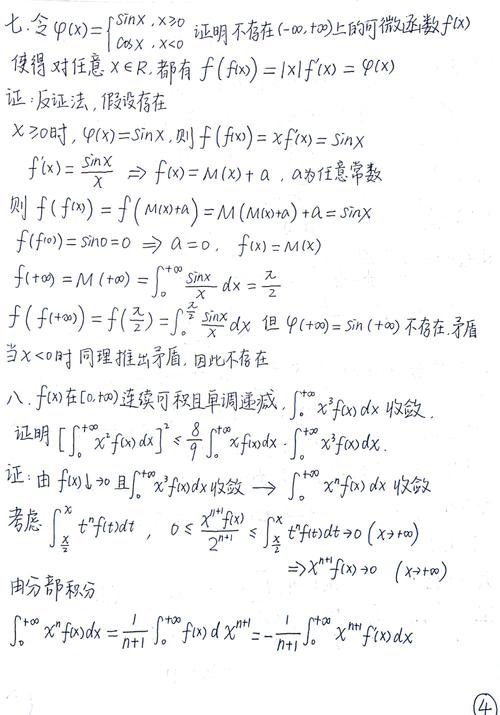 七.令 φ(x)={sinx, x≥0 cosx, x<0 证明不存在(-∞,+∞)上的可微函数f(x)
使得对任意 x∈R,都有 f(f(x))=|x|f'(x)=φ(x)
证:反证法,假设存在
x≥0时, φ(x)=sinx,则 f(f(x))=xf'(x)=sinx
f'(x)=sinx/x ⇒ f(x)=M(x)+a, a为任意常数
则 f(f(x))=f(M(x)+a)=M(M(x)+a)+a=sinx
f(f(0))=sin0=0 ⇒ a=0, f(x)=M(x)
f(+∞)=M(+∞)=∫₀^{+∞} sinx/x dx=π/2
f(f(+∞))=f(π/2)=∫₀^{π/2} sinx/x dx 但 φ(+∞)=sin(+∞)不存在.矛盾
当x<0时同理推出矛盾,因此不存在
八.f(x)在[0,+∞)连续可积且单调递减,∫₀^{+∞} x³f(x)dx 收敛.
证明[∫₀^{+∞} x²f(x)dx]²≤8/9∫₀^{+∞} xf(x)dx·∫₀^{+∞} x³f(x)dx.
证:由 f(x)↓→0 且∫₀^{+∞} x³f(x)dx收敛 → ∫₀^{+∞} xⁿf(x)dx 收敛
考虑∫_{x/2}^{x} tⁿf(t)dt, 0≤x^{n+1}f(x)/2^{n+1}≤∫_{x/2}^{x} tⁿf(t)dt→0 (x→+∞)
⇒x^{n+1}f(x)→0 (x→+∞)
由分部积分
∫₀^{+∞} xⁿf(x)dx=1/(n+1)∫₀^{+∞} f(x)dx^{n+1}=-1/(n+1)∫₀^{+∞} x^{n+1}f'(x)dx
④